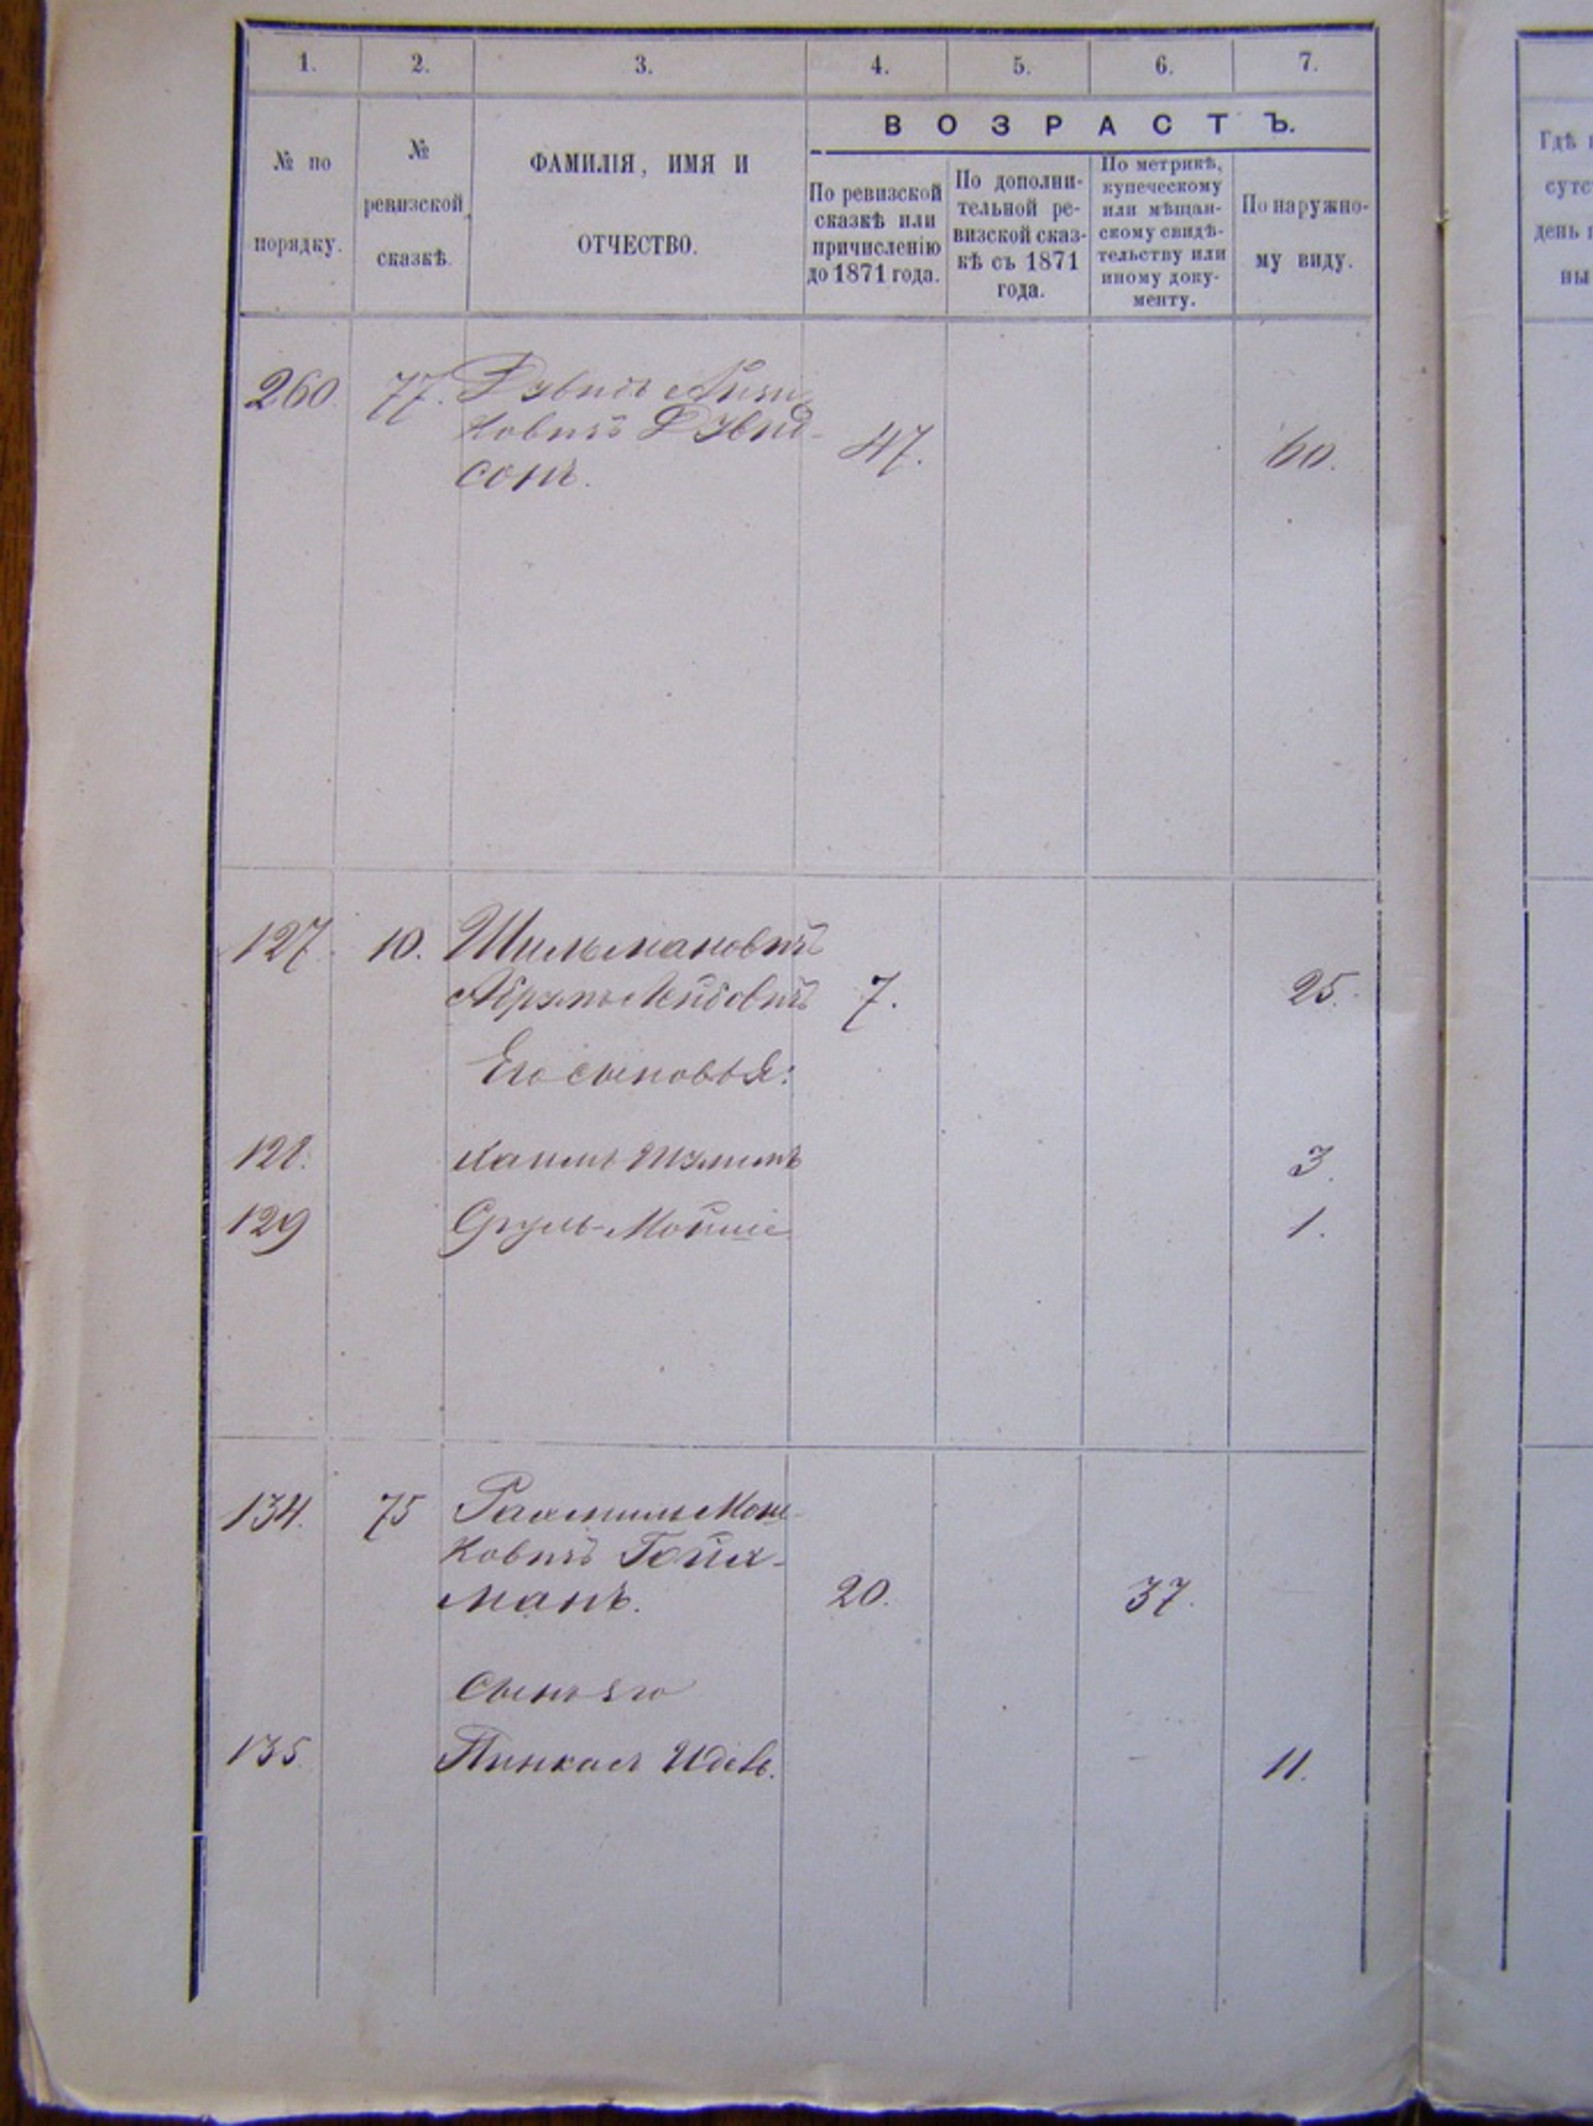 1. 2. 3. 4. 5. 6. 7.
№ по порядку.
№ ревизской сказкѣ.
ФАМИЛІЯ, ИМЯ И
ОТЧЕСТВО.
ВОЗРАСТЪ.
По ревизской
сказкѣ или
причисленію
до 1871 года.
По дополни-
тельной ре-
визской сказ-
кѣ съ 1871
года.
По метрикѣ,
купеческому
или мѣщан-
скому свидѣ-
тельству или
иному доку-
менту.
По наружно-
му виду.
260. 77. Дувидъ Айзи-
ковичъ Дувид-
сонъ. 47. 60.
127. 10. Шильмановичъ
Абрумъ Лейбовичъ 7. 25.
Его сыновья:
128. Хаимъ 3.
129 Сруль-Мойше 1.
134. 75 Рахмиль Мош-
ковичъ
манъ. 20. 37.
Сынъ его
135. Пинкасъ 11.
Гдѣ
день
ны